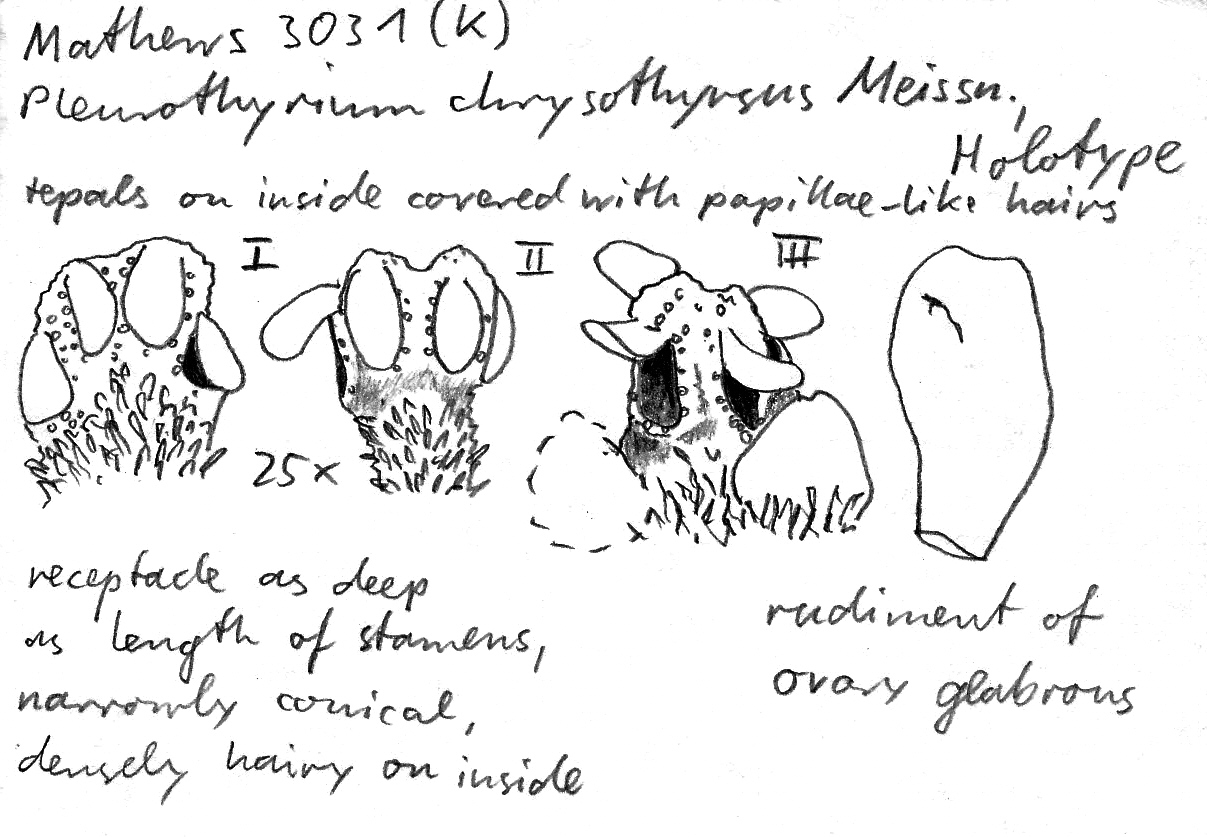 Mathews 3031 (K)
Pleurothyrium chrysothyrsus Meissn.,
Holotype
tepals on inside covered with papillae-like hairs
I II III
25 x
receptacle as deep
as length of stamens,
narrowly conical,
densely hairy on inside
rudiment of
ovary glabrous